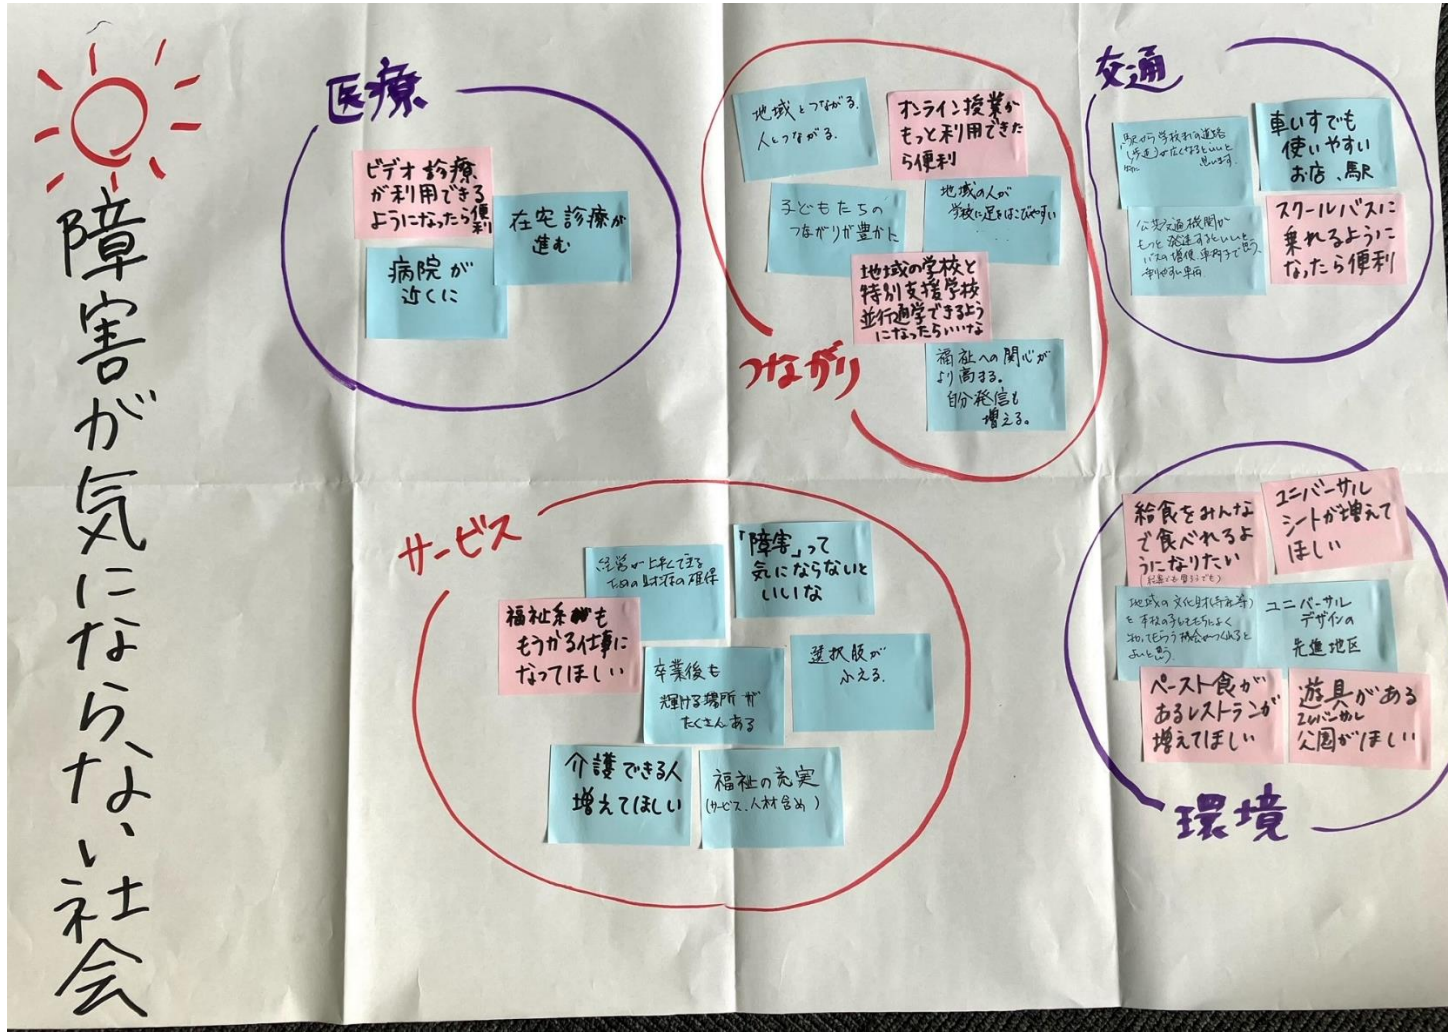 障害が気にならない社会
医療
ビデオ診療
が利用できる
ようになったら便利
在宅診療が
進む
病院が
近くに
つながり
地域とつながる.
人とつながる.
オンライン授業が
もっと利用できた
ら便利
子どもたちの
つながりが豊かに
地域の人が
学校に足をはこびやすい
地域の学校と
特別支援学校
並行通学できるよう
になったらいいな
福祉への関心が
より高まる。
自分発信も
増える。
交通
駅から学校までの道路
(歩道)が広くなるといいと
思います.
車いすでも
使いやすい
お店、駅
公共交通機関が
もっと発達するといいと
バスの増便、車椅子で
乗りやすい車両
スクールバスに
乗れるように
なったら便利
サービス
経営が上手くできる
ための財源の確保
「障害」って
気にならないと
いいな
福祉系も
もうかる仕事に
なってほしい
卒業後も
輝ける場所が
たくさんある
選択肢が
ふえる.
介護できる人
増えてほしい
福祉の充実
(サービス、人材含め)
環境
給食をみんな
で食べれるよ
うになりたい
ユニバーサル
シートが増えて
ほしい
地域の文化財(寺社等)
を本校の子どもたちによく
知ってもらう機会がつくれると
よいと思う.
ユニバーサル
デザインの
先進地区
ペースト食が
あるレストランが
増えてほしい
遊具がある
ユニバーサル
公園がほしい